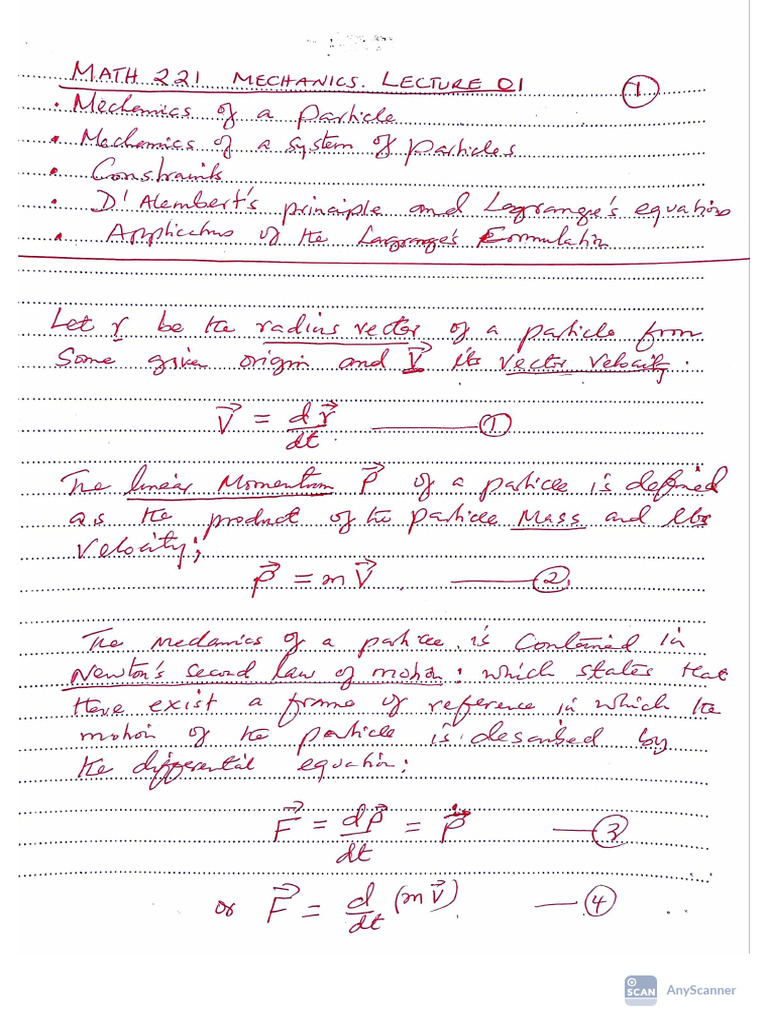 MATH 221 MECHANICS. LECTURE 01 ①
• Mechanics of a particle
• Mechanics of a system of particles
• Constraints
• D'Alembert's principle and Lagrange's equations
• Applications of the Lagrange's Formulation
Let r be the radius vector of a particle from
Some given origin and V⃗ its vector velocity:
V⃗ = dr⃗/dt ——— ①
The linear Momentum P⃗ of a particle is defined
as the product of the particle Mass and its
velocity;
P⃗ = mV⃗ ——— ②
The mechanics of a particle is Contained in
Newton's second law of motion: which states that
there exist a frame of reference in which the
motion of the particle is described by
the differential equation:
F⃗ = dP⃗/dt = Ṗ⃗ —— ③
or F⃗ = d/dt (mV⃗) —— ④
SCAN AnyScanner